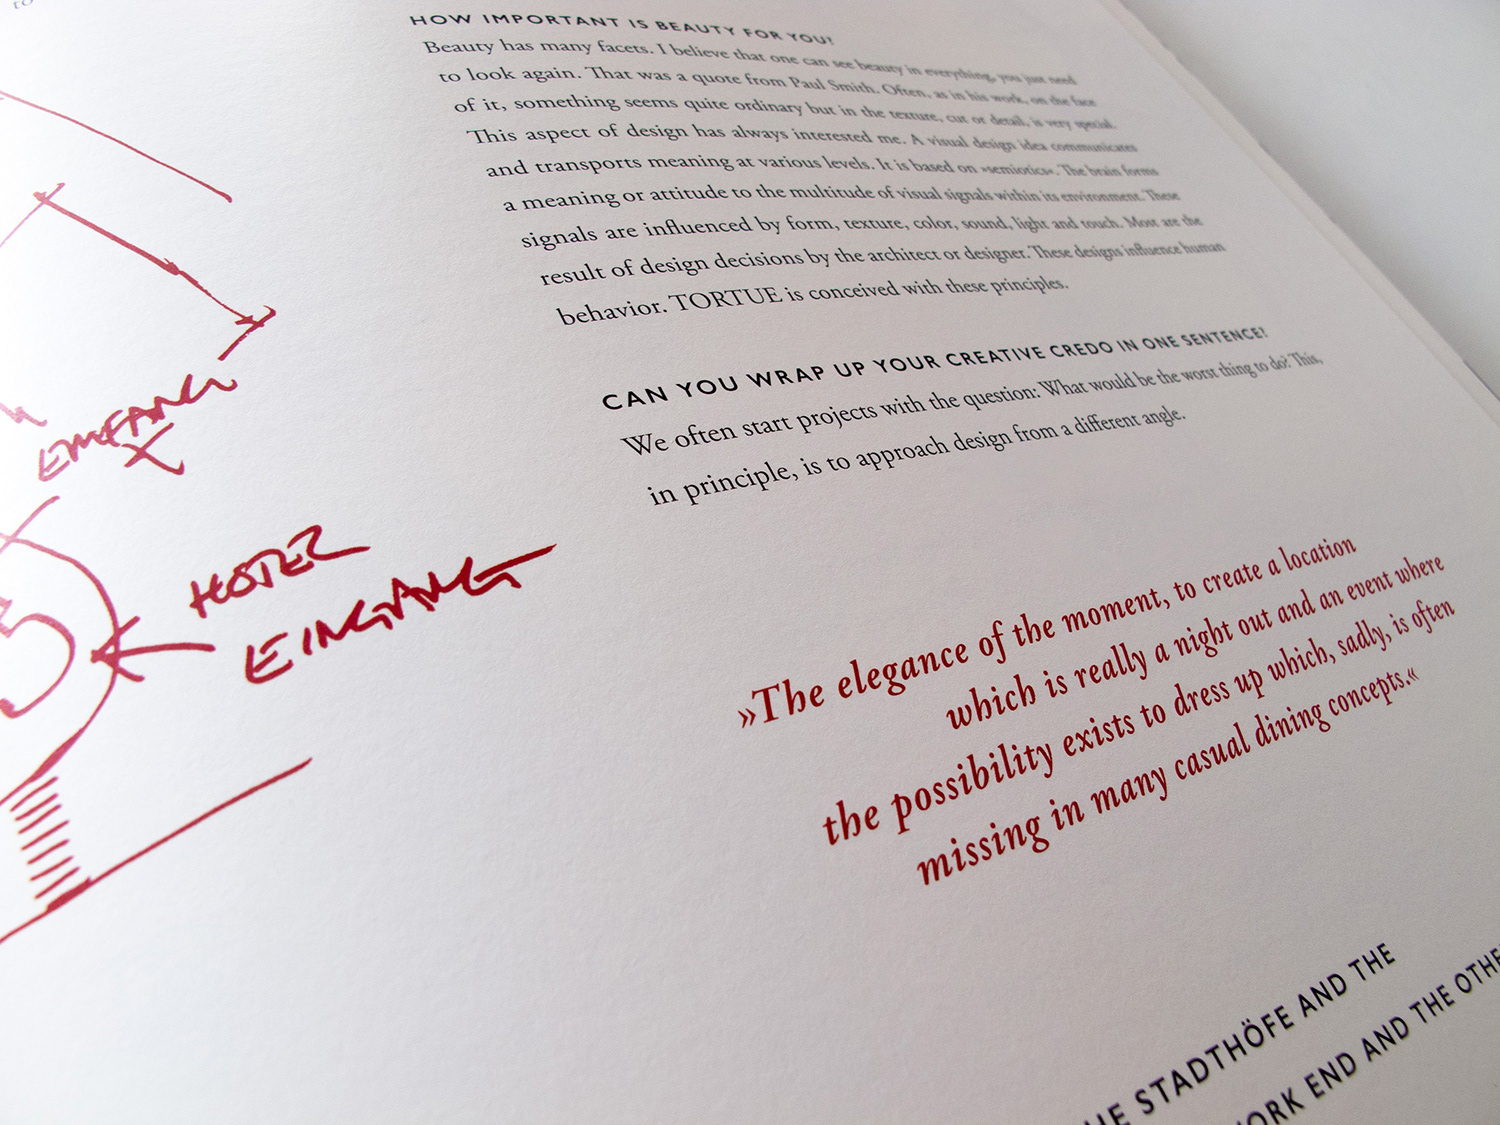 to
HOW IMPORTANT IS BEAUTY FOR YOU?
Beauty has many facets. I believe that one can see beauty in everything, you just need
to look again. That was a quote from Paul Smith. Often, as in his work, on the face
of it, something seems quite ordinary but in the texture, cut or detail, is very special.
This aspect of design has always interested me. A visual design idea communicates
and transports meaning at various levels. It is based on »semiotics«. The brain forms
a meaning or attitude to the multitude of visual signals within its environment. These
signals are influenced by form, texture, color, sound, light and touch. Most are the
result of design decisions by the architect or designer. These designs influence human
behavior. TORTUE is conceived with these principles.
CAN YOU WRAP UP YOUR CREATIVE CREDO IN ONE SENTENCE?
We often start projects with the question: What would be the worst thing to do? This,
in principle, is to approach design from a different angle.
EMPFANG
HOTEL
EINGANG
»The elegance of the moment, to create a location
which is really a night out and an event where
the possibility exists to dress up which, sadly, is often
missing in many casual dining concepts.«
HE STADTHÖFE AND THE
ORK END AND THE OTHE